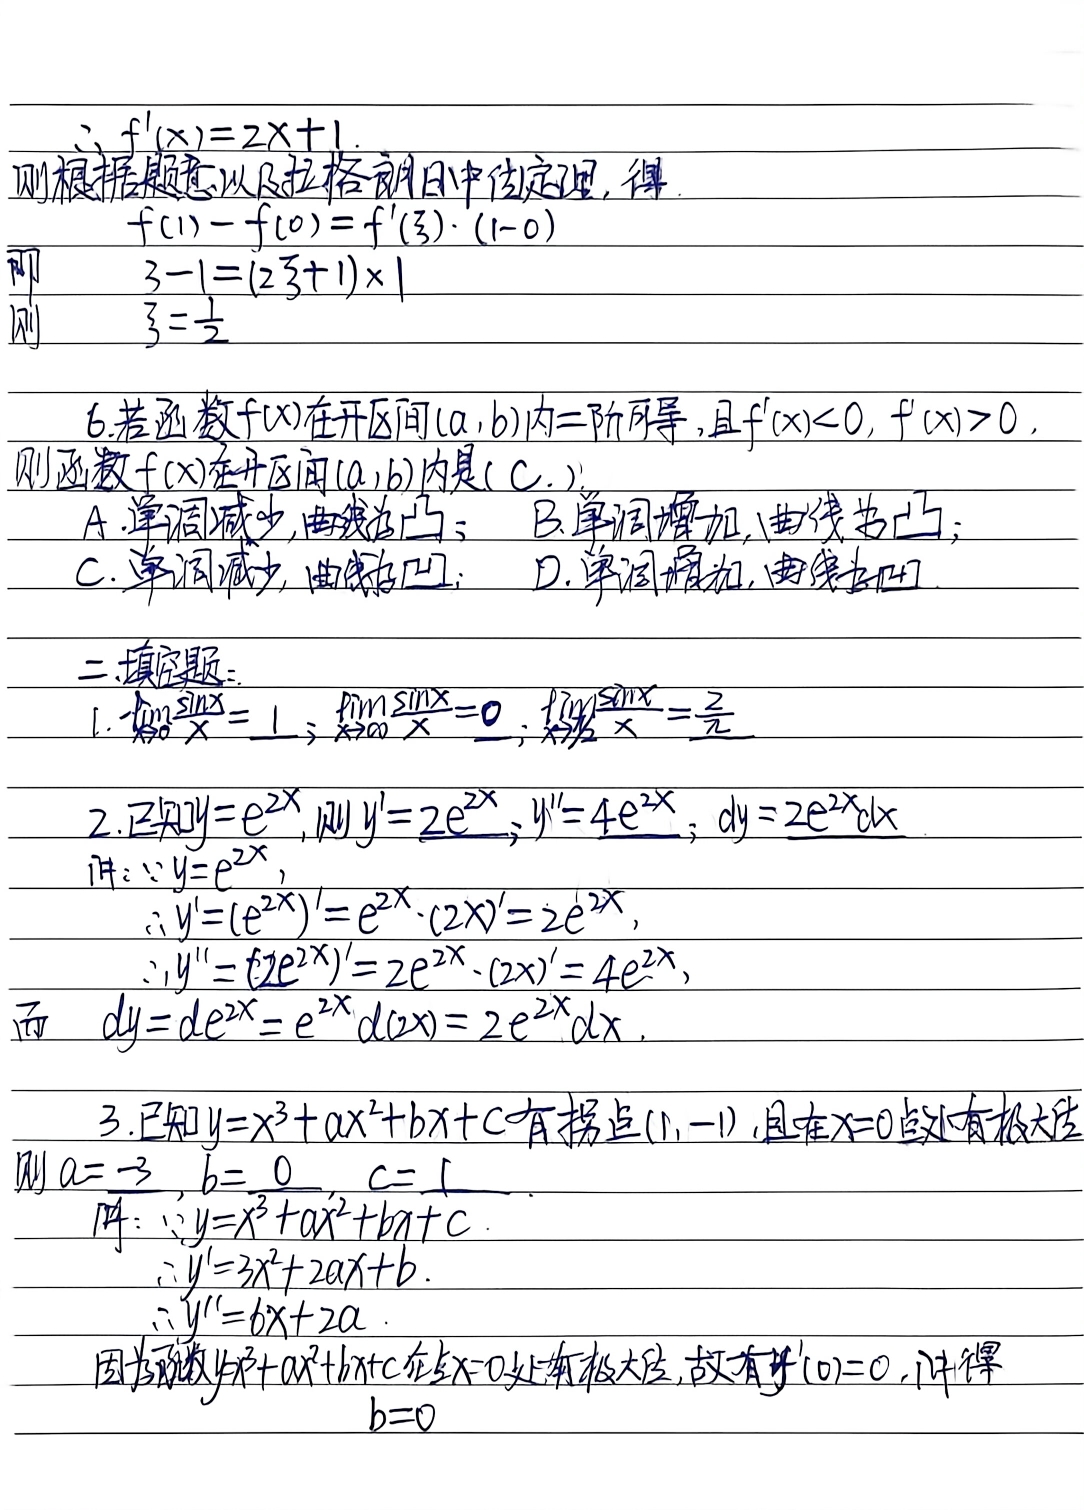 ∴ f'(x)=2x+1.
则根据题意以及拉格朗日中值定理,得
f(1)-f(0)=f'(ξ)·(1-0)
即 3-1=(2ξ+1)×1
则 ξ=1/2
6.若函数f(x)在开区间(a,b)内二阶可导,且f'(x)<0, f'(x)>0,
则函数f(x)在开区间(a,b)内是( C. ):
A.单调减少,曲线为凸; B.单调增加,曲线为凸;
C.单调减少,曲线为凹; D.单调增加,曲线为凹.
二.填空题:
1. lim x→0 sinx/x = 1 ; lim x→∞ sinx/x = 0 ; lim x→π/2 sinx/x = 2/π
2.已知y=e^2x,则y'=2e^2x; y''=4e^2x; dy=2e^2xdx
解:∵y=e^2x,
∴y'=(e^2x)'=e^2x·(2x)'=2e^2x,
∴y''=(2e^2x)'=2e^2x·(2x)'=4e^2x,
而 dy=de^2x=e^2xd(2x)=2e^2xdx.
3.已知y=x³+ax²+bx+c有拐点(1,-1),且在x=0点处有极大值
则a=-3, b=0, c=1.
解:∵y=x³+ax²+bx+c.
∴y'=3x²+2ax+b.
∴y''=6x+2a.
因为函数y=x³+ax²+bx+c在点x=0处有极大值,故有y'(0)=0,解得
b=0